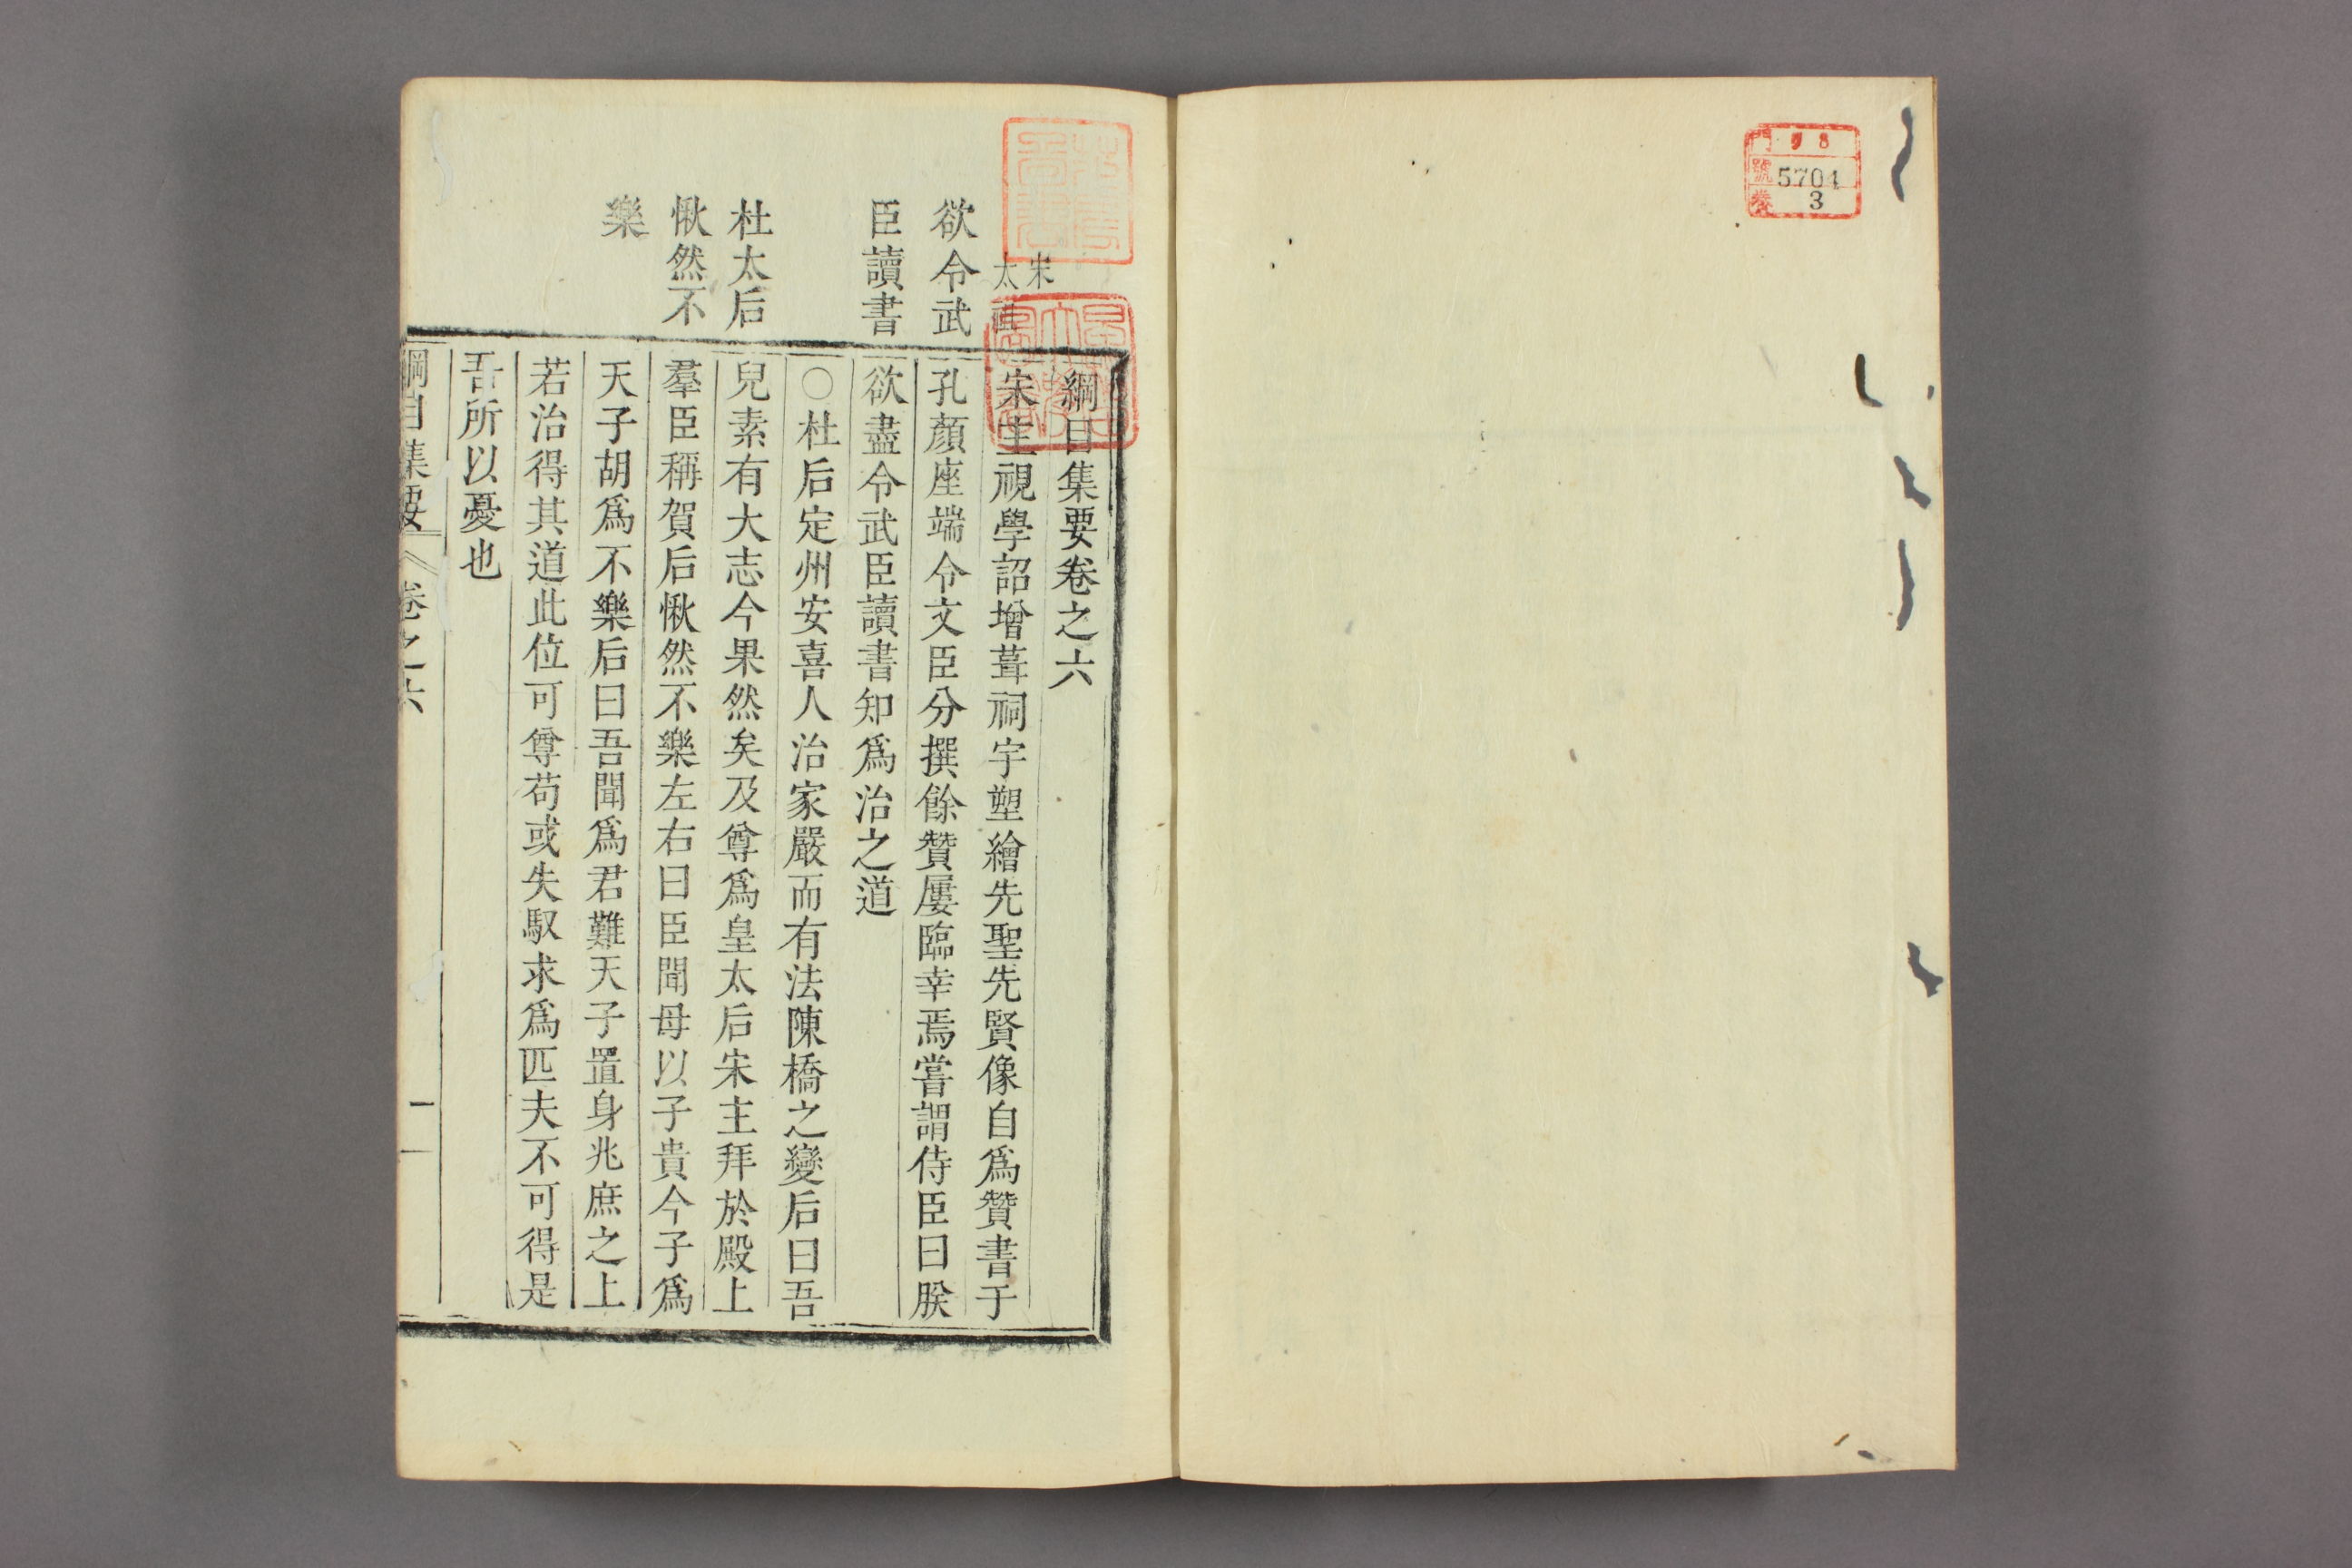 門 8
號 5704
卷 3
宋
太祖
欲令武
臣讀書
杜太后
愀然不
樂
綱目集要卷之六
宋主視學詔增葺祠宇塑繪先聖先賢像自爲贊書于
孔顏座端令文臣分撰餘贊屢臨幸焉嘗謂侍臣曰朕
欲盡令武臣讀書知爲治之道
○杜后定州安喜人治家嚴而有法陳橋之變后曰吾
兒素有大志今果然矣及尊爲皇太后宋主拜於殿上
羣臣稱賀后愀然不樂左右曰臣聞母以子貴今子爲
天子胡爲不樂后曰吾聞爲君難天子置身兆庶之上
若治得其道此位可尊苟或失馭求爲匹夫不可得是
吾所以憂也
綱目集要 卷之六 一